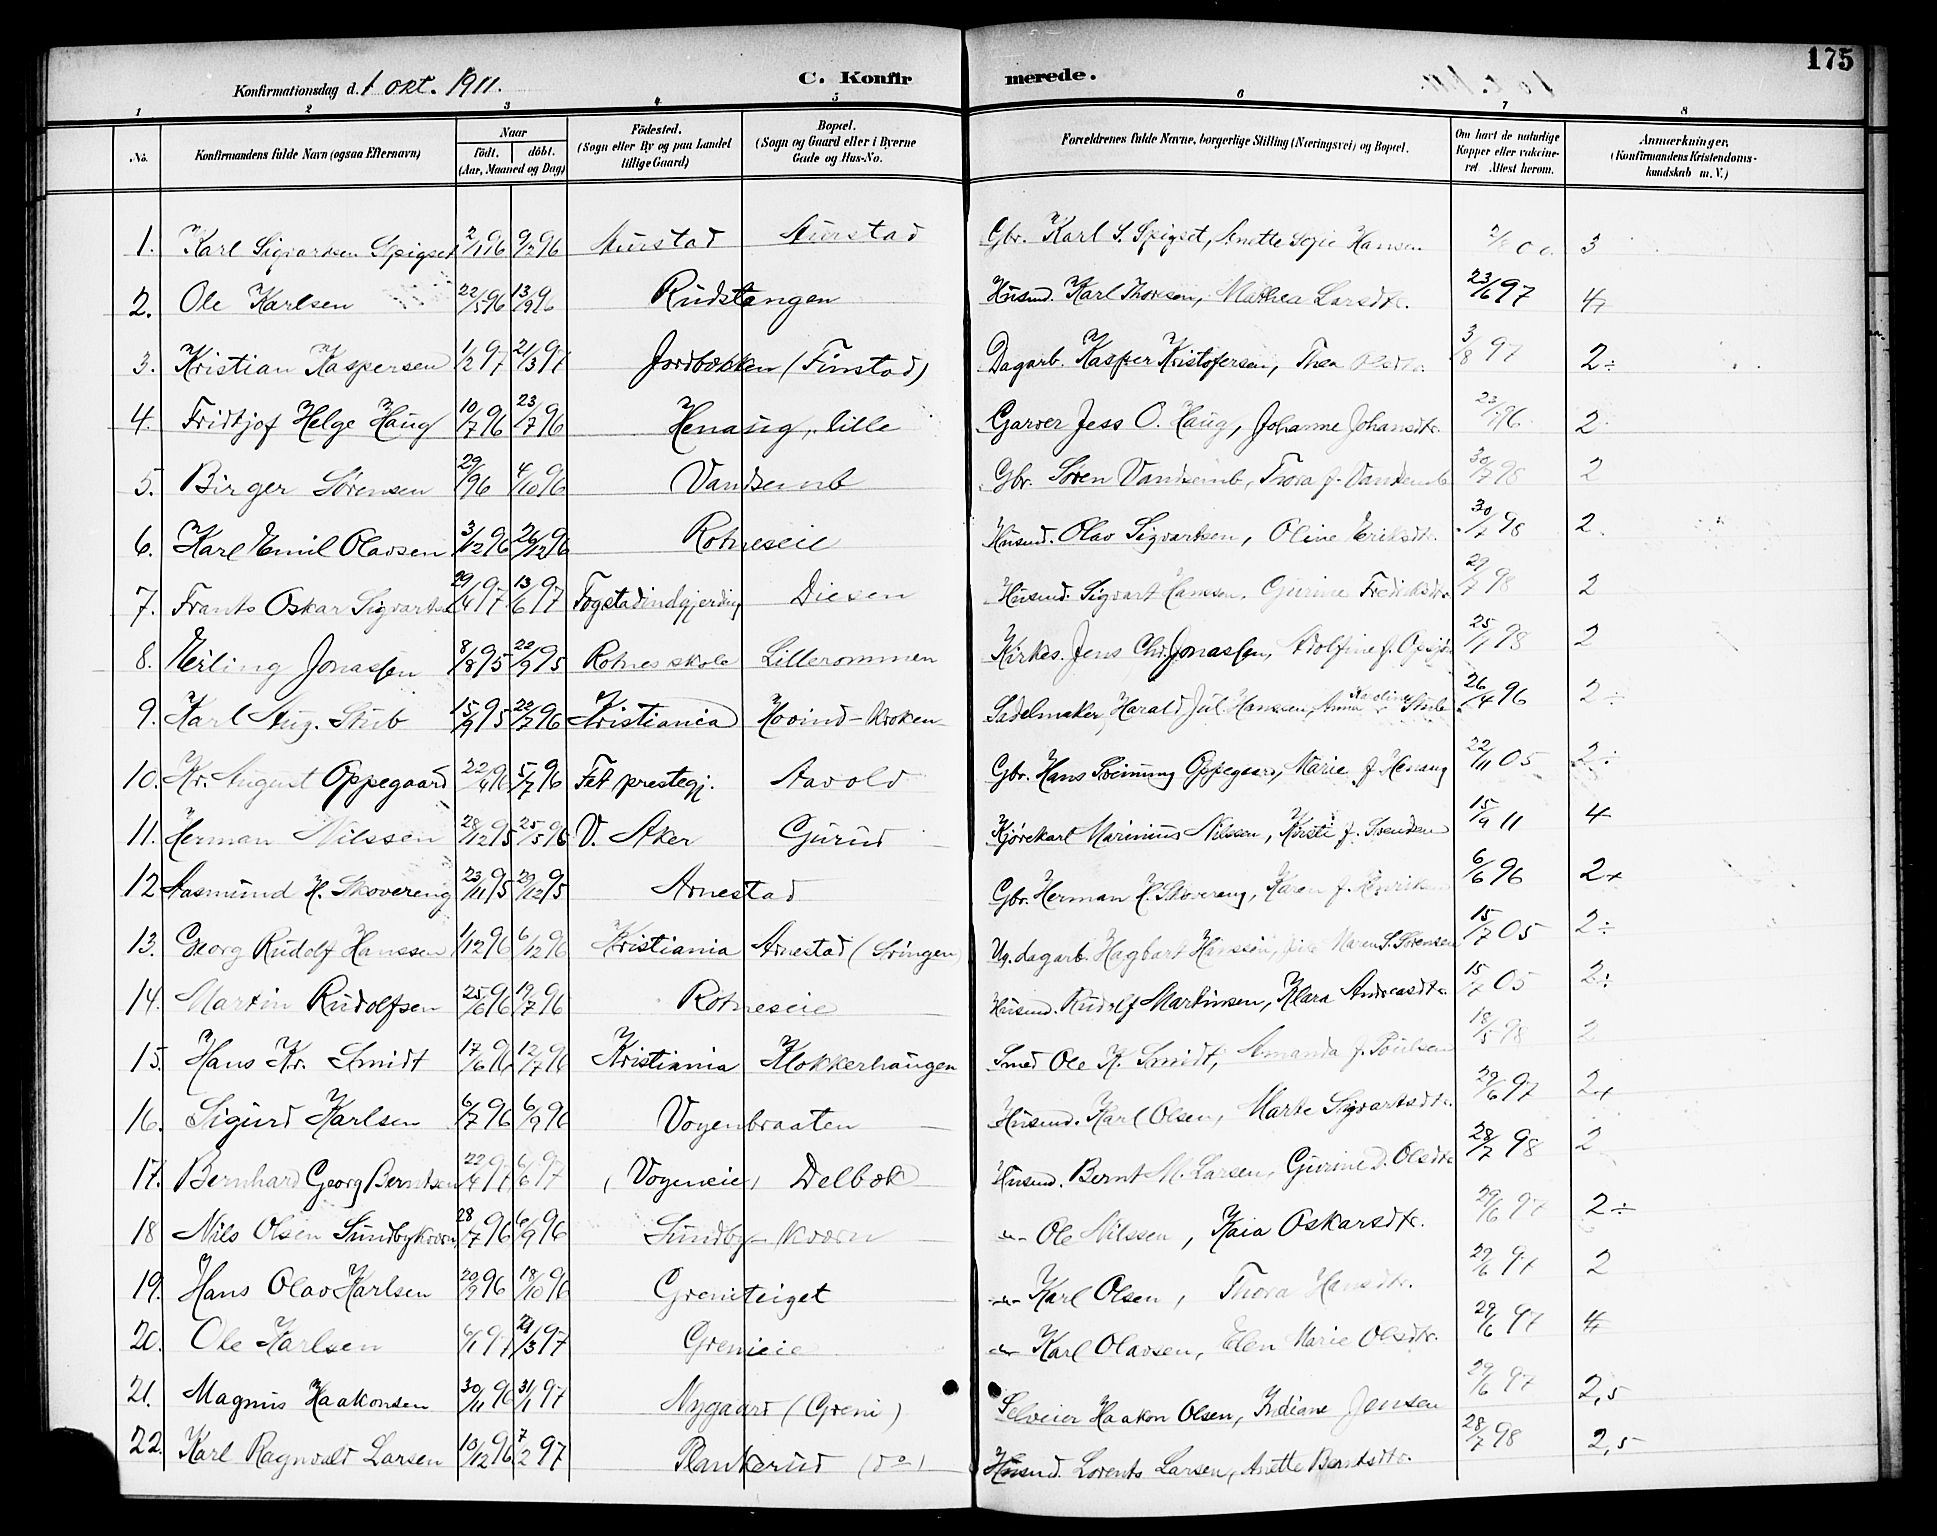 175
Konfirmationsdag d. 1 okt. 1911.
C. Konfirmerede.
1 2 3 4 5 6 7 8
No.
Konfirmandens fulde Navn (ogsaa Efternavn)
Naar
födt. döbt.
(Aar, Maaned og Dag)
Födested.
(Sogn eller By og paa Landet
tillige Gaard)
Bopæl.
(Sogn og Gaard eller i Byerne
Gade og Hus-No.
Forældrenes fulde Navne, borgerlige Stilling (Næringsvei) og Bopæl.
Om havt de naturlige
Kopper eller vakcine-
ret Attest herom.
Anmærkninger.
(Konfirmandens Kristendoms-
kundskab m. V.)
1. Karl Sigvartsen Spigset 2/11 96 9/2 96 Aurstad Aurstad Gbr. Karl S. Spigset, Anette Hansen 3
2. Ole Karlsen 22/5 96 13/9 96 Rudstangen Husmd. Karl Thorsen, Mathea Larsdtr. 23/6 97 4+
3. Kristian Kaspersen 1/2 97 21/3 97 Jordbækken (Finstad) Dagarb. Kasper Kristofersen, Thea Olsdtr. 3/8 97 2÷
4. Fridtjof Helge Haug 10/7 96 23/7 96 Henaug, lille Garver Jess O. Haug, Johanne Johansdtr. 2
5. Birger Sørensen 29/ 96 4/10 96 Vandsemb Gbr. Søren Vandsemb, Thora f. Vandsemb 30/7 98 2
6. Karl Emil Olavsen 3/12 96 26/12 96 Rotneseie Husmd. Olav Sigvartsen, Oline Eriksdtr. 30/7 98 2.
7. Frants Oskar Sigvartsen 29/4 97 13/6 97 Fogstadindgjerding Diesen Husmd. Sigvart Hansen. Gurine Fredriksdtr. 29/7 98 2
8. Erling Jonassen 8/8 95 22/9 95 Rotnes skole Lillerommen Kirkes. Jens Chr. Jonassen, Adolfine f. 25/1 98 2
9. Karl Aug. Stub 15/9 95 22/7 96 Kristiania Hovind-kroken Sadelmaker Harald Jul. Hanssen, Anna Stub 26/4 96 2÷
10. Kr. August Oppegaard 22/4 96 5/7 96 Fet prestegj. Aavold Gbr. Hans Oppegaard, Marie f. Henaug 22/11 05 2÷
11. Herman Nilssen 28/12 95 25/5 96 V. Aker Gurud Kjørekarl Marinius Nilssen, Kirsti f. Svendsen 15/9 11 4
12 Aasmund H. Skovereng 23/11 95 29/12 95 Arnestad Gbr. Herman H. Skovereng, Karen f. 6/6 96 2+
13. Georg Rudolf Hanssen 1/12 96 6/12 96 Kristiania Arnestad (Svingen) Ug. dagarb. Hagbart Hanssen, Maren S. Sørensen 15/7 05 2÷
14. Martin Rudolfsen 25/6 96 19/7 96 Rotneseie Husmd. Rudolf Martinsen, Klara Andreasdtr. 15/7 05 2÷
15. Hans Kr. Smidt 17/6 96 12/7 96 Kristiania Klokkerhaugen Smed Ole K. Smidt, Amanda f. Poulsen 18/5 98 2
16. Sigurd Karlsen 6/7 96 6/9 96 Voyenbraaten Husmd. Karl Olsen, Marte Sigvartsdtr. 29/6 97 2+
17. Bernhard Georg Berntsen 22/4 97 6/6 97 (Voyeneie) Delbæk Husmd. Bernt M. Larsen, Gurine D. Olsdtr 28/7 98 2
18 Nils Olsen Sundbykværn 28/7 96 6/9 96 Sundby-kværn -"- Ole Nilssen, Kaia Oskarsdtr. 29/6 97 2÷
19. Hans Olav Karlsen 20/9 96 18/10 96 Greniteiget -"- Karl Olsen, Thora Hansdtr. 29/6 97 2
20. Ole Karlsen 6/1 97 21/3 97 Grenieie -"- Karl Olavsen, Elen Marie Olsdtr. 29/6 97 4
21. Magnus Haakonsen 30/11 96 31/1 97 Nygaard (Greni) Selveier Haakon Olsen, Indiane Jensen 29/6 97 2,5
22. Karl Ragnvald Larsen 10/12 96 7/2 97 Plankerud (do) Husmd. Lorents Larsen, Anette Berntsdtr. 28/7 98 2,5